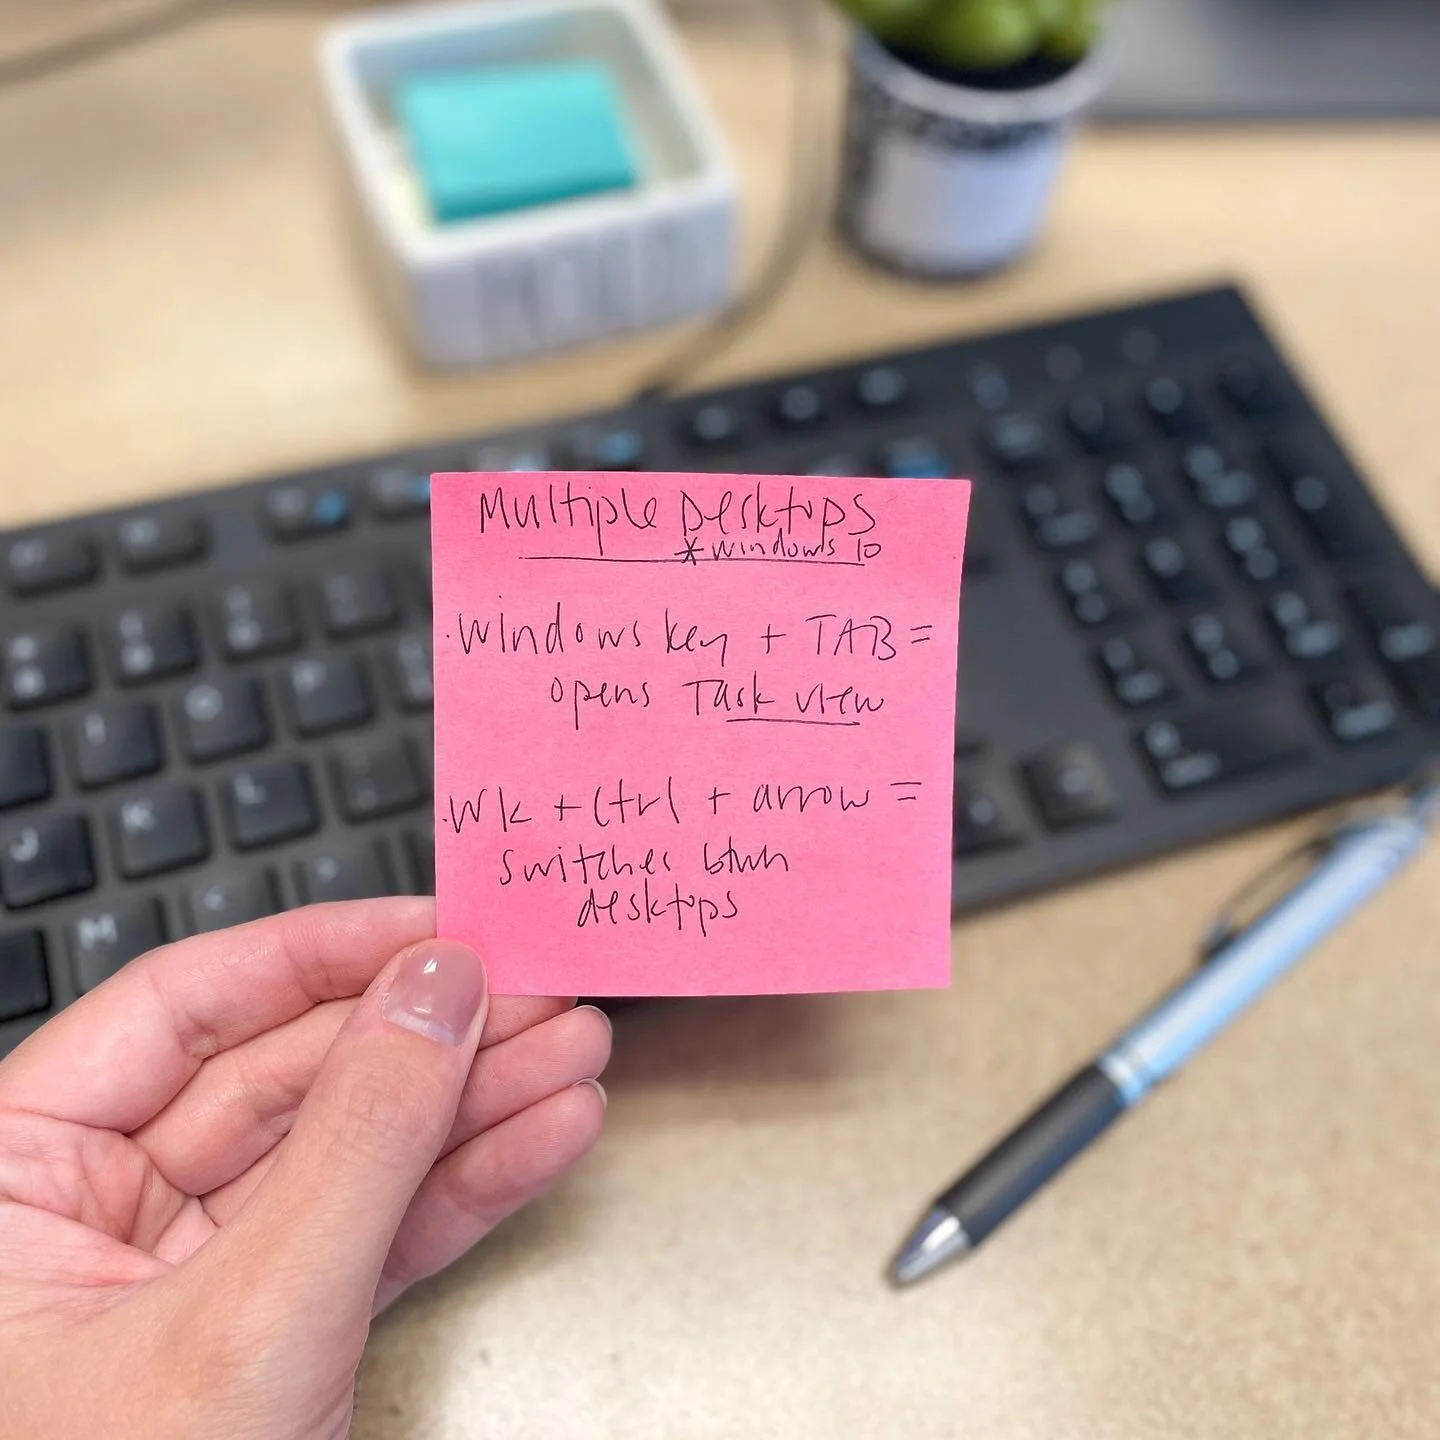 Multiple Desktops
* windows 10
. Windows key + TAB =
opens Task view
. WK + Ctrl + arrow =
switches btwn
desktops